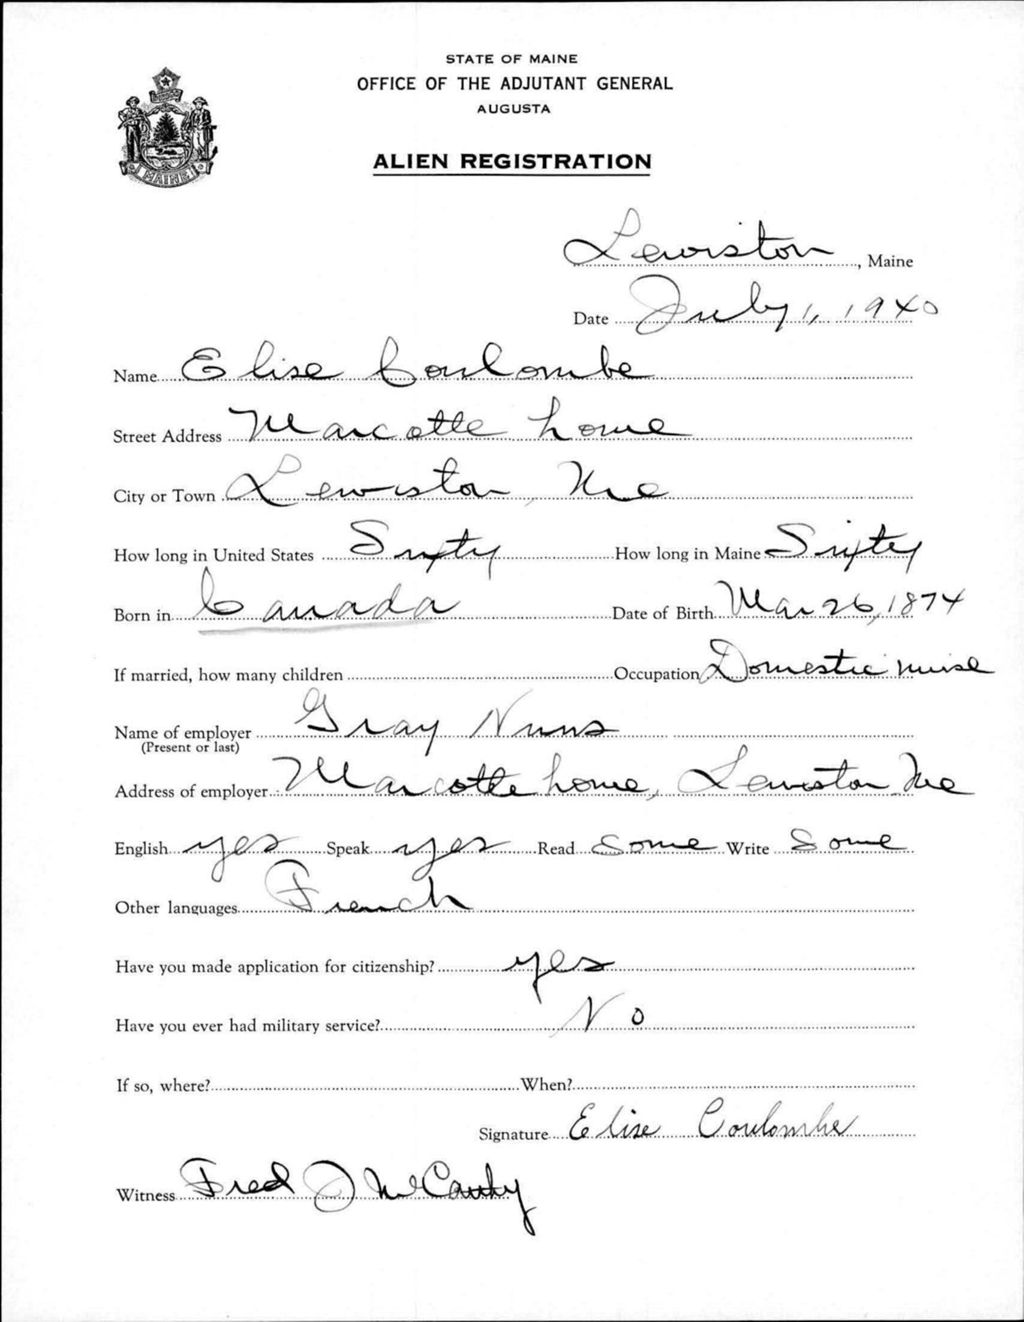 STATE OF MAINE
OFFICE OF THE ADJUTANT GENERAL
AUGUSTA
ALIEN REGISTRATION
MAINE
Lewiston, Maine
Date July 1, 1940
Name Elise Coulombe
Street Address Marcotte home
City or Town Lewiston, Me
How long in United States Sixty How long in Maine Sixty
Born in Canada Date of Birth Mar 26, 1874
If married, how many children Occupation Domestic nurse
Name of employer Gray Nuns
(Present or last)
Address of employer Marcotte home, Lewiston Me
English yes Speak yes Read Some Write Some
Other languages French
Have you made application for citizenship? yes
Have you ever had military service? No
If so, where? When?
Signature Elise Coulombe
Witness Fred J McCarthy